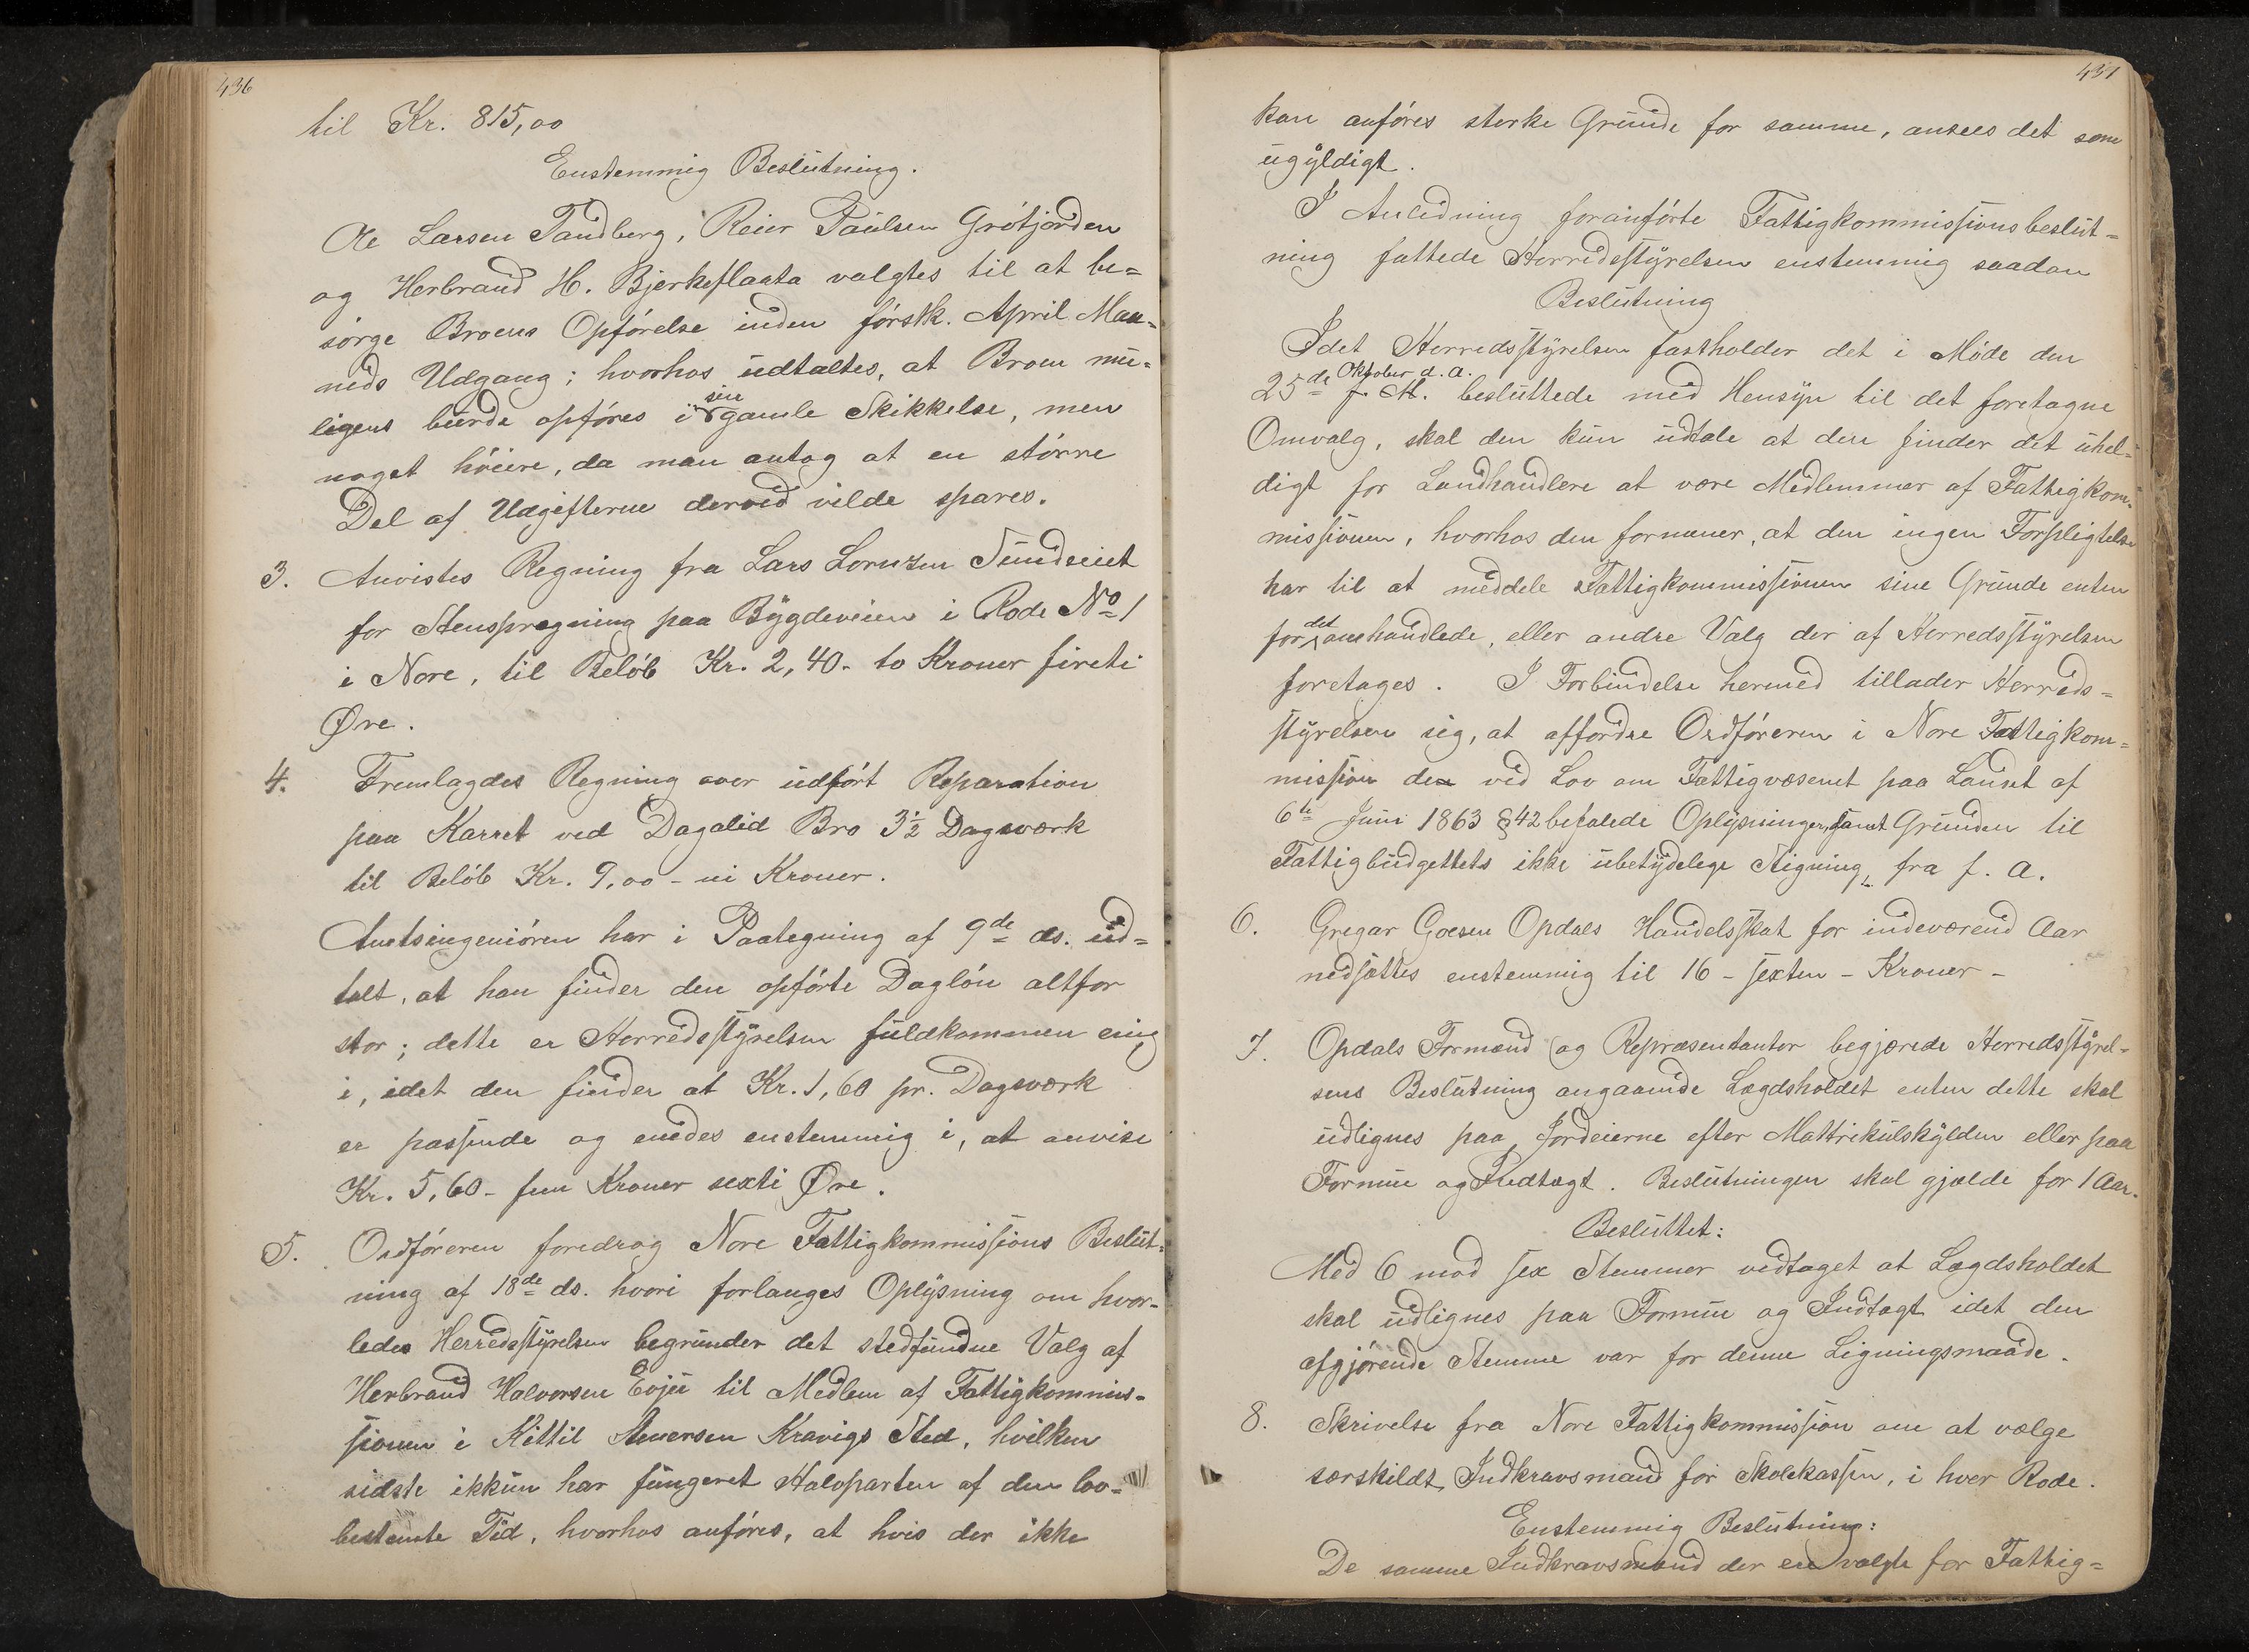 436
til Kr. 815,00
Enstemmig Beslutning.
Ole Larsen Tandberg, Reier Paulsen Grötjorden
og Herbrand H. Bjerkeflaata valgtes til at be=
sørge Broens Opförelse inden förstk. April Maa=
neds Udgang; hvorhos udtaltes, at Broen mu=
ligens burde opføres i sin gamle Skikkelse, men
noget höiere, da man antog at en större
Del af Udgifterne derved vilde spares.
3. Anvistes Regning fra Lars Lornzen Sundeiet
for Stensprægning paa Bygdeveien i Rode No 1
i Nore, til Belöb Kr. 2,40 - to Kroner fireti
Øre.
4. Fremlagdes Regning over udfört Reparation
paa Karret ved Dagalid Bro 3½ Dagsværk
til Belöb Kr. 9,00 - ni Kroner.
Amtsingeniören har i Paategning af 9de ds. ud=
talt, at han finder den opförte Daglön altfor
stor; dette er Herredsstyrelsen fuldkommen enig
i, idet den finder at Kr. 1,60 pr. Dagsværk
er passende og enedes enstemmig i, at anvise
Kr. 5,60 - fem Kroner sexti Øre.
5. Ordføreren foredrog Nore Fattigkommissions Beslut=
ning af 18de ds. hvori forlanges Oplysning om hvor=
ledes Herredsstyrelsen begrunder det stedfundne Valg af
Herbrand Halvorsen Evju til Medlem af Fattigkommis=
sionen i Kittil Kravigs Sted, hvilken
sidste ikkun har fungeret Halvparten af den lov=
bestemte Tid, hvorhos anföres, at hvis der ikke
437
kan anföres sterke Grunde for samme, ansees det som
ugyldigt.
I Anledning foranførte Fattigkommissionsbeslut=
ning fattede Herredsstyrelsen enstemmig saadan
Beslutning
Idet Herredsstyrelsen fastholder det i Möde den
25de Oktober d. A. f. M. besluttede med Hensyn til det foretagne
Omvalg, skal den kun udtale at den finder det uhel=
digt for Landhandlere at være Medlemmer af Fattigkom=
missionen, hvorhos den formener, at den ingen Forpligtelse
har til at meddele Fattigkommissionen sine Grunde enten
for det omhandlede, eller andre Valg der af Herredsstyrelsen
foretages. I Forbindelse hermed tillader Herreds=
styrelsen sig, at affordre Ordföreren i Nore Fattigkom=
mission de ved Lov om Fattigvæsenet paa Landet af
6te Juni 1863 § 42 befalede Oplysninger, samt Grunden til
Fattigbudgettets ikke ubetydelige Stigning, fra f. A.
6. Gregar Goesen Opdals Handelsskat for indeværend Aar
nedsættes enstemmig til 16 - sexten - Kroner -
7. Opdals Formænd og Repræsentanter begjærede Herredsstyrel=
sens Beslutning angaaende Lægdsholdet enten dette skal
udlignes paa Jordeierne efter Mattrikulskylden eller paa
Formue og Indtægt. Beslutningen skal gjælde for 1 Aar.
Besluttet:
Med 6 mod sex Stemmer vedtaget at Lægdsholdet
skal udlignes paa Formue og Indtægt idet den
afgjörende Stemme var for denne Ligningsmaade.
8. Skrivelse fra Nore Fattigkommission om at vælge
særskildt Indkravsmænd for Skolekassen, i hver Rode.
Enstemmig Beslutning:
De samme Indkravsmænd der ere valgte for Fattig=